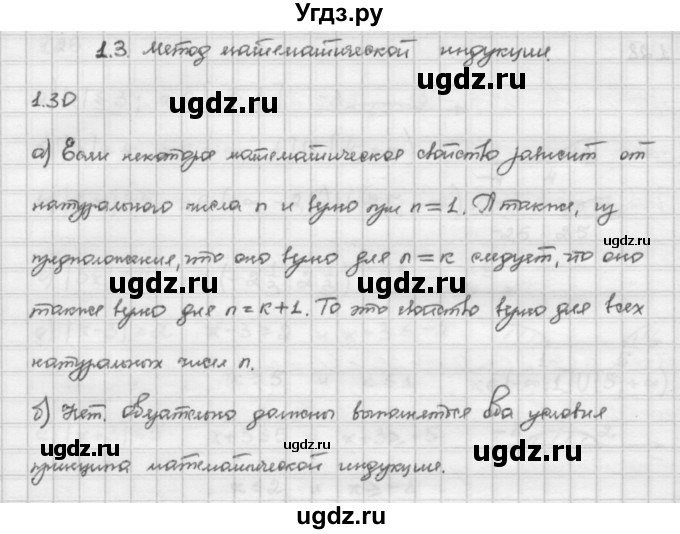 Угдз.ру
1.3. Метод математической индукции.
ugdz.ru ugdz.ru
1.30
а) Если некоторое математическое свойство зависит от
ugdz.ru
натурального числа n и верно при n = 1. А также, из
ugdz.ru
предположения, что оно верно для n = k следует, что оно
ugdz.ru
также верно для n = k + 1. То это свойство верно для всех
ugdz.ru ugdz.ru
натуральных чисел n.
б) Нет. Обязательно должны выполняться два условия
ugdz.ru ugdz.ru ugdz.ru
принципа математической индукции.
ugdz.ru